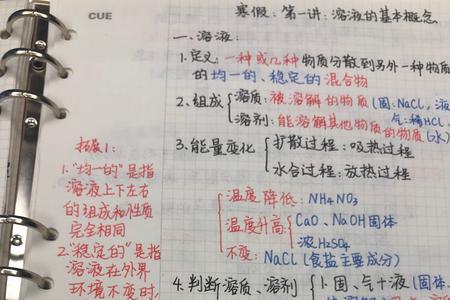 CUE
寒假：第一讲：溶液的基本概念
一、溶液：
1.定义：一种或几种物质分散到另外一种物质
的均一的、稳定的混合物
2.组成 溶质：被溶解的物质(固：NaCl，液
气：稀HCl、
溶剂：能溶解其他物质的物质(水)
3.能量变化 扩散过程：吸热过程
水合过程：放热过程
温度降低：NH4NO3
温度升高 CaO、NaOH固体
浓H2SO4
不变：NaCl(食盐主要成分)
4.判断溶质、溶剂 1.固、气+液(固体、
拓展1：
1."均一的"是指
溶液上下左右
的组成和性质
完全相同
2."稳定的"是指
溶液在外界
环境不变时，